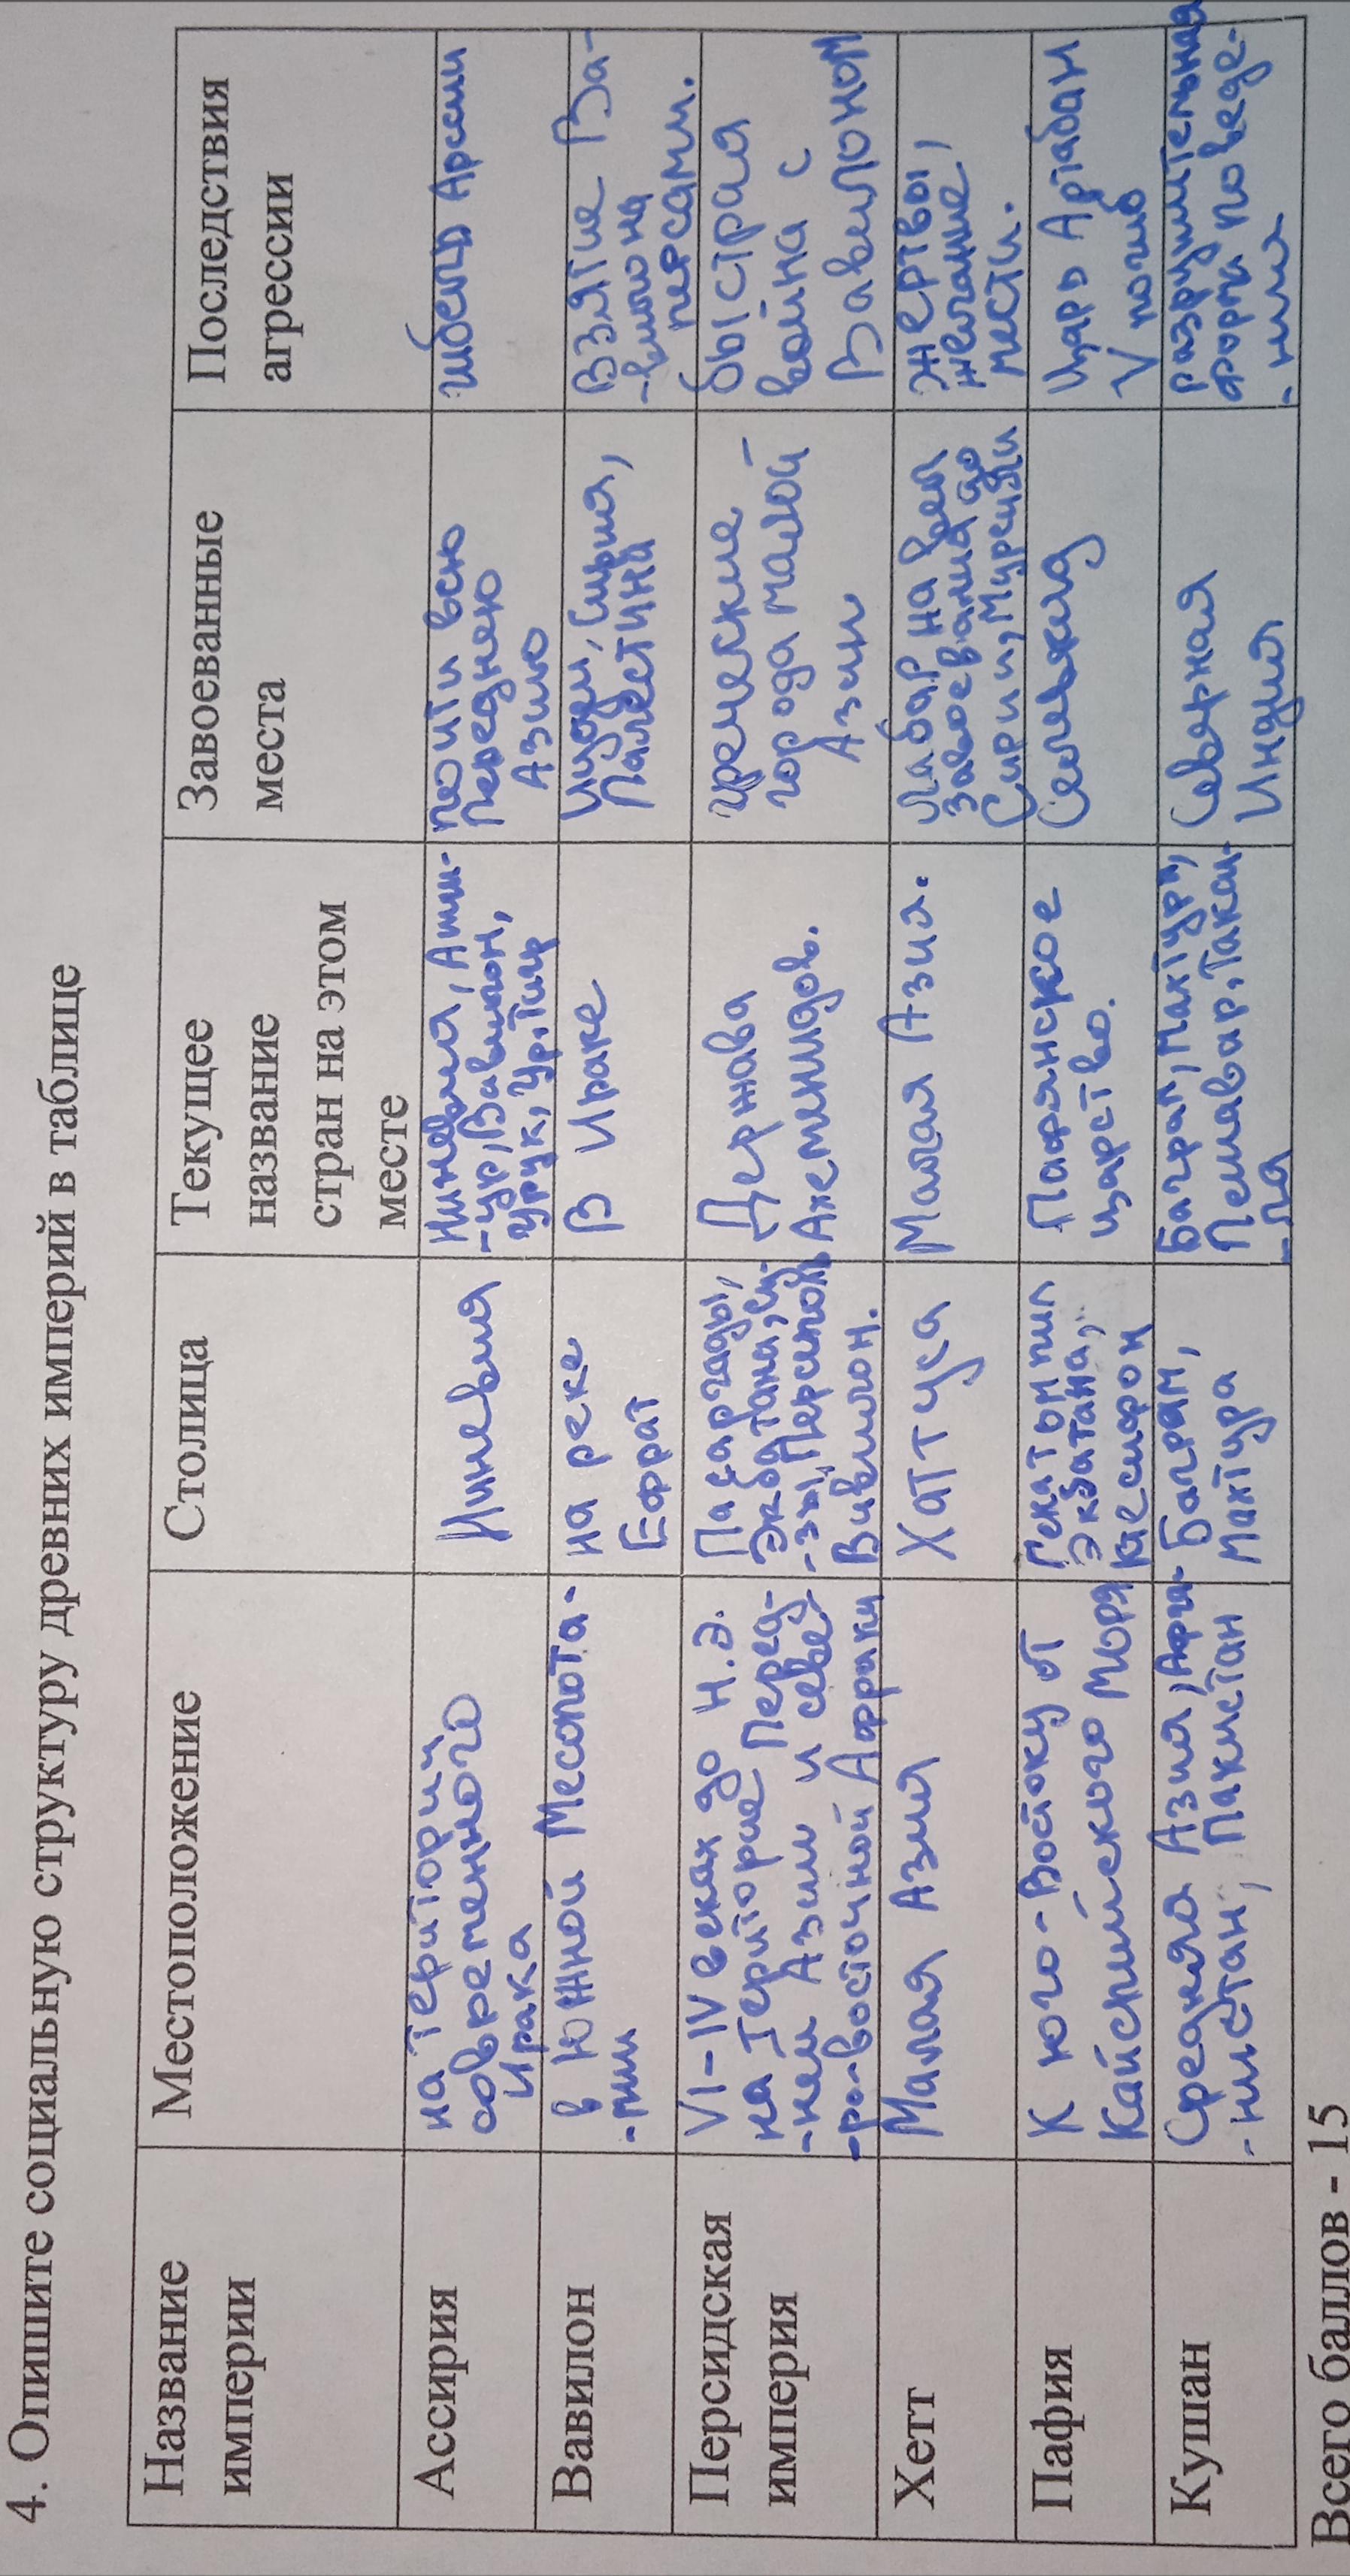 4. Опишите социальную структуру древних империй в таблице
Название
империи
Местоположение
Столица
Текущее
название
стран на этом
месте
Завоеванные
места
Последствия
агрессии
Ассирия
на територий
современного
Ирака
Ниневия
Ниневия, Ашш-
-ур, Вавилон,
Урук, Ур, Тир
почти всю
Переднею
Азию
гибель Арсии
Вавилон
в Южной Месопота-
-мии
на реке
Ефрат
В Ираке
Иудеи, Сирия,
Палестина
Взятие Ва-
-вилона
персами.
Персидская
империя
VI-IV веках до н.э.
на Територие Перед-
-ней Азии и севе-
-ро-восточной Африки
Пасаргады,
Экбатана, Су-
-зы, Персиполь
Вивилон.
Держава
Ахеменидов.
греческие
города малой
Азии
быстрая
война с
Вавилоном
Хетт
Малая Азия
Хаттуса
Малая Азия.
Лабар на вел
завоевания до
Сирии, Мурсили
жертвы,
желание,
мести.
Пафия
К юго-Востоку от
Кайспийского моря
Гекатомпил
Экбатана,
Ктесифон
Парфянское
царство.
Селевкид
Царь Артабан
V погиб
Кушан
Средняя Азия, Афга-
-нистан, Пакистан
Баграм,
Матхура
Баграм, Матхура,
Пешавар, Такси-
-ла
Северная
Индия
разрушительная
форма поведе-
-ния
Всего баллов - 15